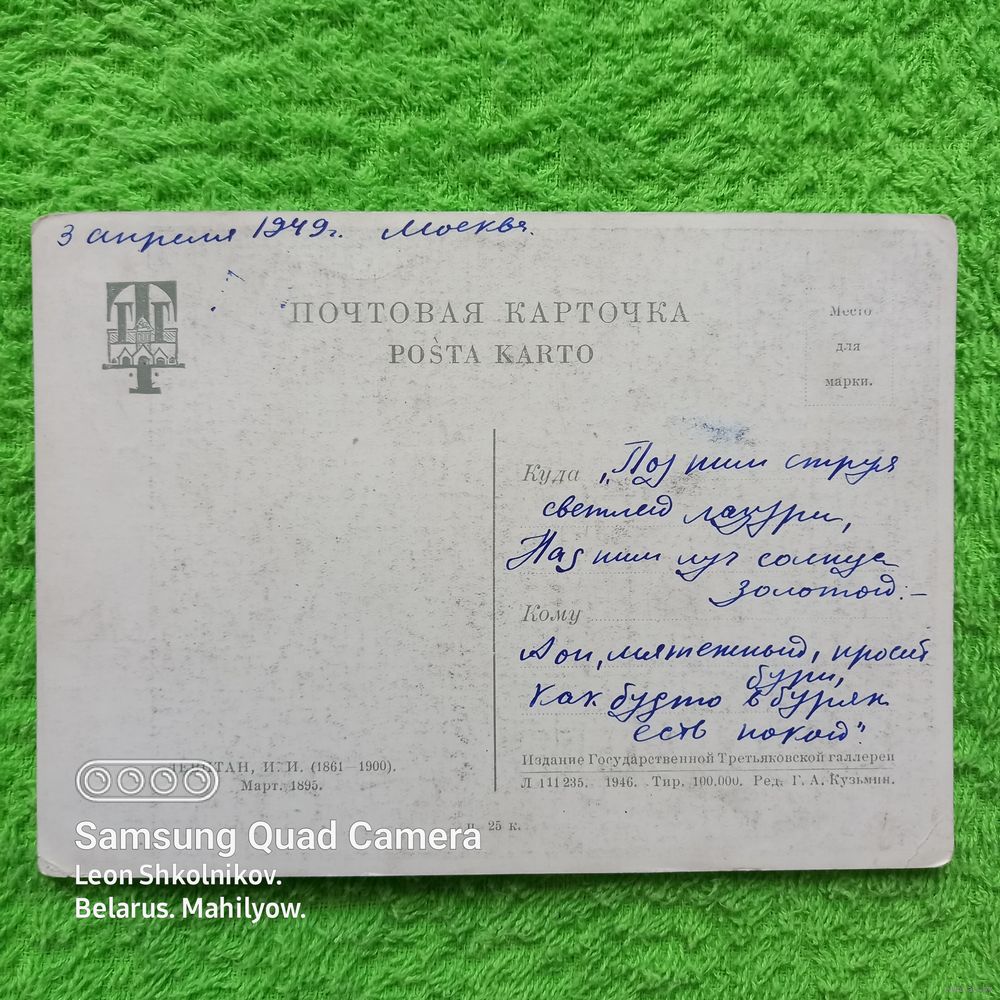 3 апреля 1949г. Москва.
ПОЧТОВАЯ КАРТОЧКА
POŜTA KARTO
Место
для
марки.
Куда „Под ним струя
светлей лазури,
Над ним луч солнца
золотой:—
Кому
А он, мятежный, просит
бури,
Как будто в бурях
есть покой"
ЛЕВИТАН, И. И. (1861—1900).
Март. 1895.
Издание Государственной Третьяковской галлереи
Л 111235. 1946. Тир. 100.000. Ред. Г. А. Кузьмин.
ц. 25 к.
Samsung Quad Camera
Leon Shkolnikov.
Belarus. Mahilyow.